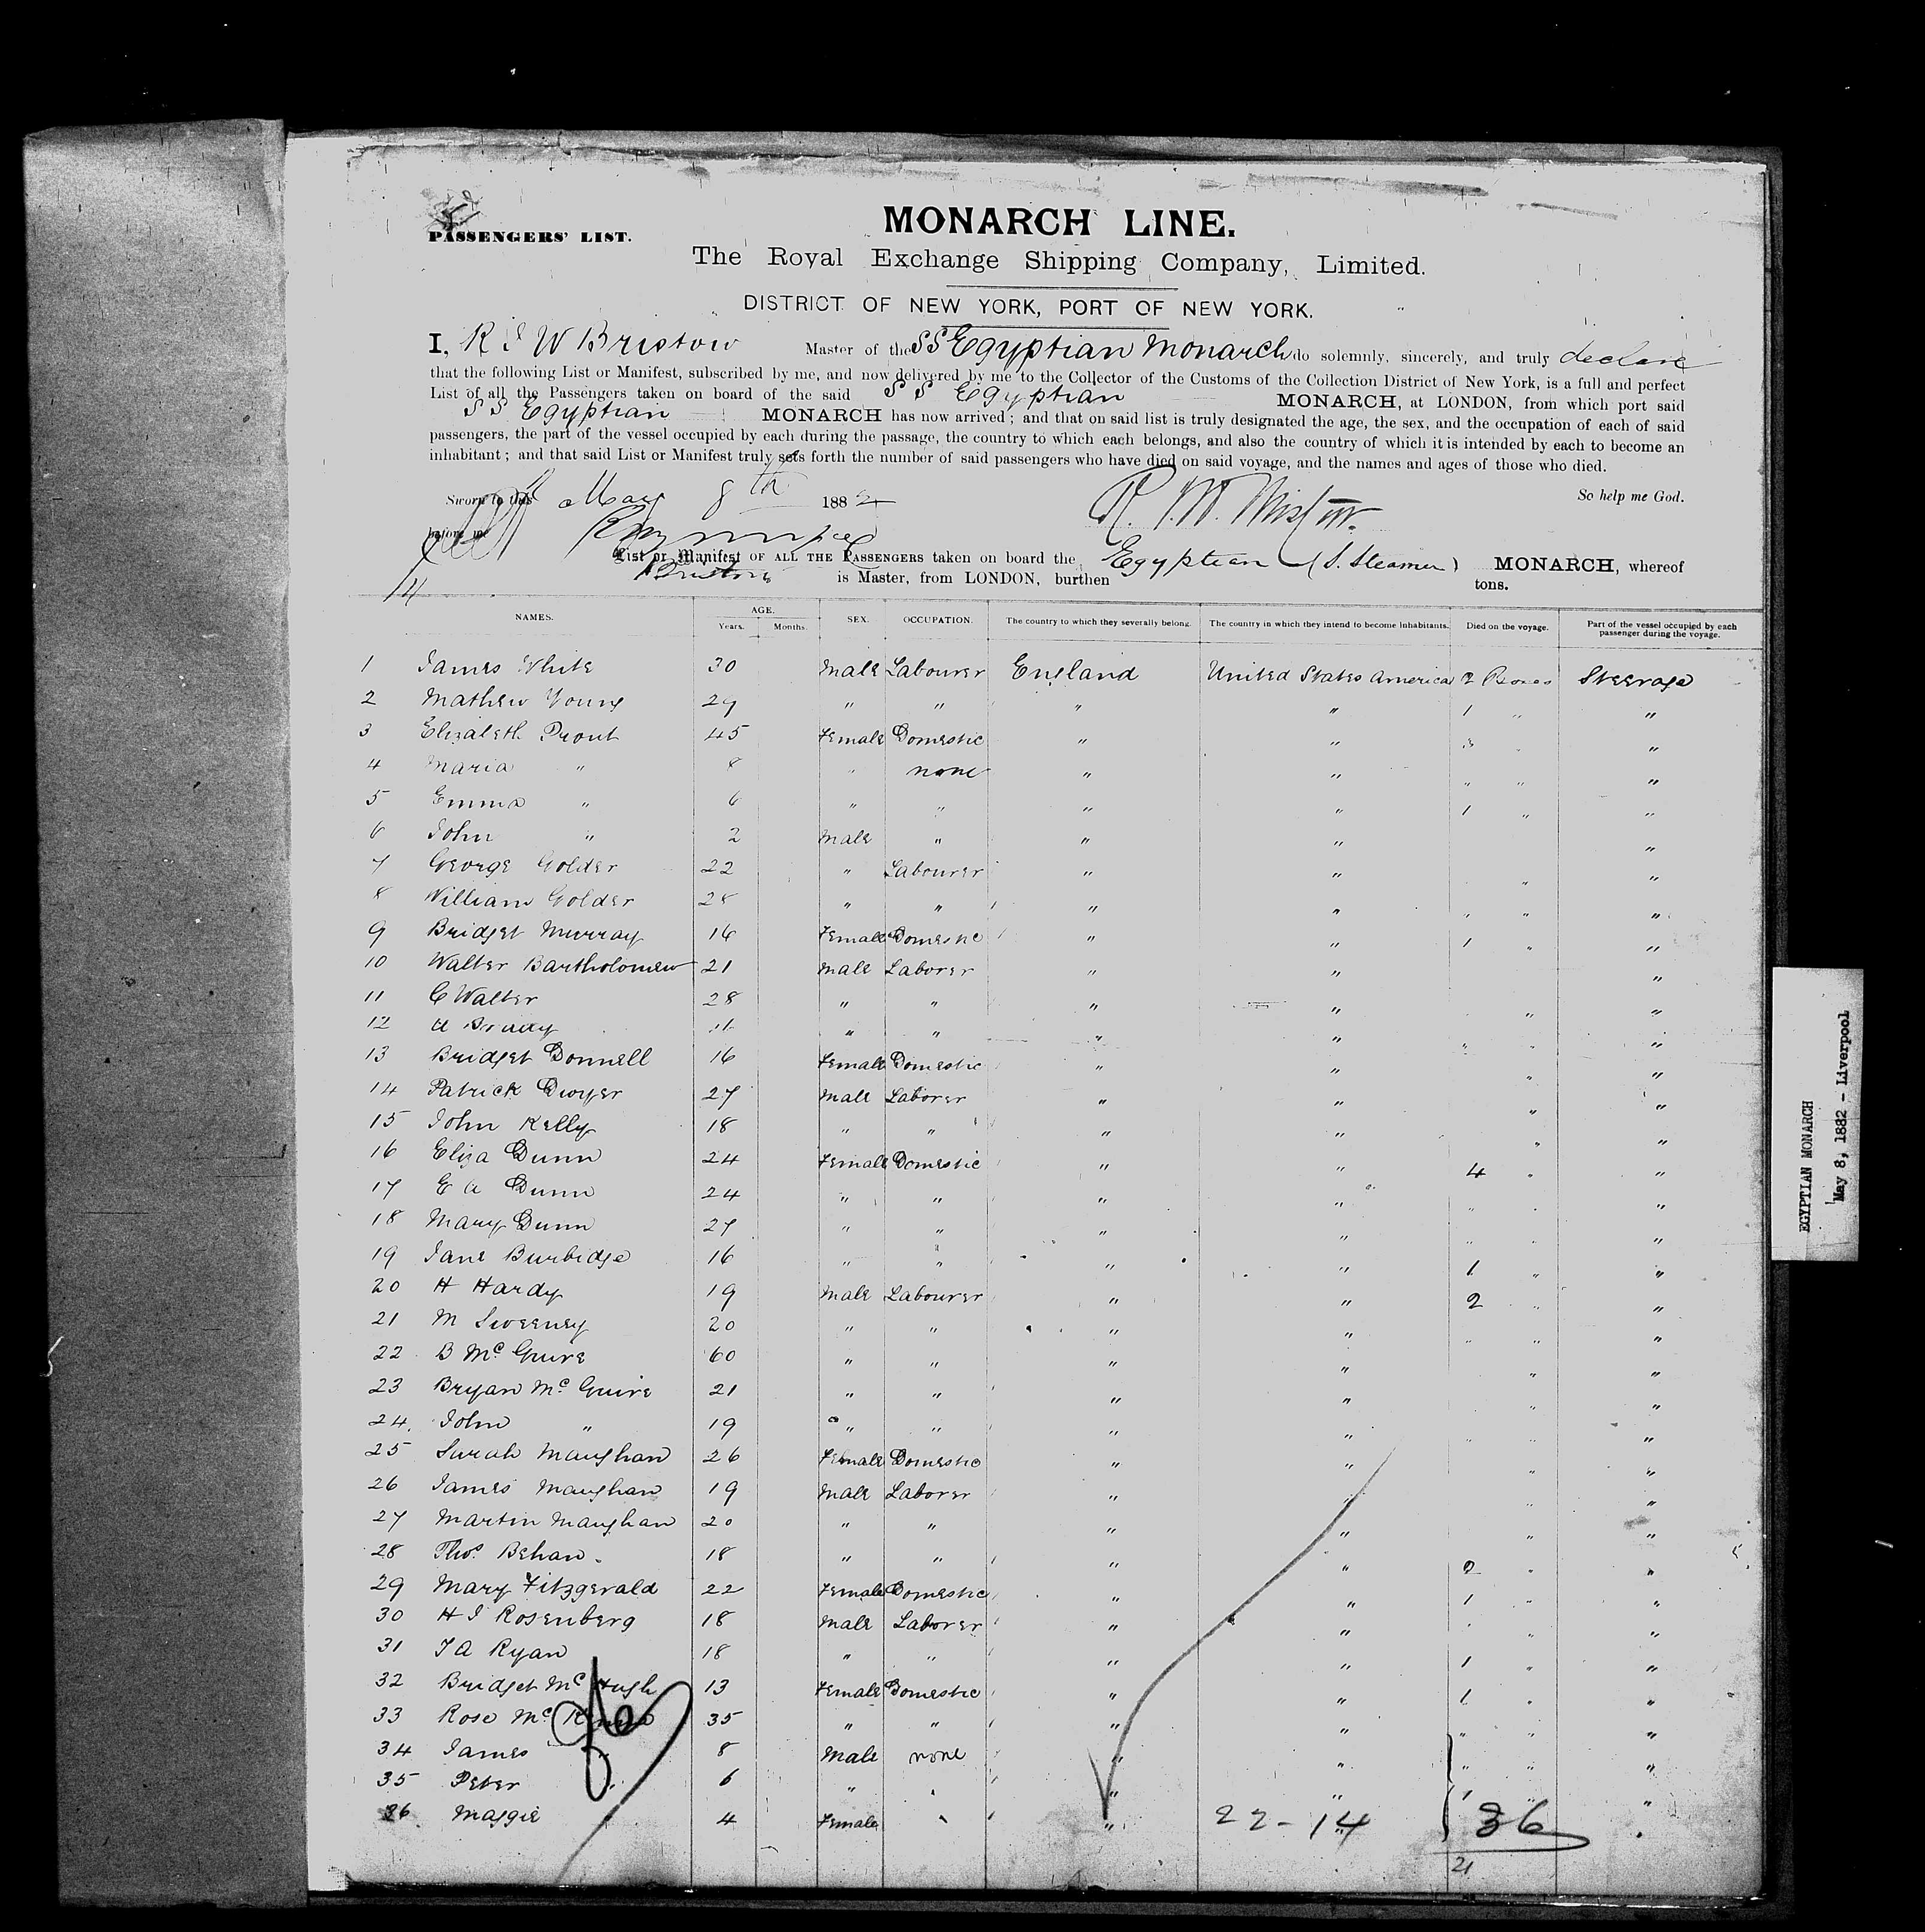 PASSENGERS' LIST.
MONARCH LINE.
The Royal Exchange Shipping Company, Limited.
DISTRICT OF NEW YORK, PORT OF NEW YORK.
I, R J W Bristow Master of the SS Egyptian Monarch do solemnly, sincerely, and truly declare
that the following List or Manifest, subscribed by me, and now delivered by me to the Collector of the Customs of the Collection District of New York, is a full and perfect
List of all the Passengers taken on board of the said S S Egyptian MONARCH, at LONDON, from which port said
S S Egyptian MONARCH has now arrived; and that on said list is truly designated the age, the sex, and the occupation of each of said
passengers, the part of the vessel occupied by each during the passage, the country to which each belongs, and also the country of which it is intended by each to become an
inhabitant; and that said List or Manifest truly sets forth the number of said passengers who have died on said voyage, and the names and ages of those who died.
So help me God.
Sworn to this May 8th 1882
before me
List or Manifest OF ALL THE PASSENGERS taken on board the Egyptian (S. Steamer) MONARCH, whereof
Bristow is Master, from LONDON, burthen tons.
14
NAMES. AGE. Years. Months. SEX. OCCUPATION. The country to which they severally belong. The country in which they intend to become Inhabitants. Died on the voyage. Part of the vessel occupied by each passenger during the voyage.
1 James White 30 Male Labourer England United States America 2 Boxes Steerage
2 Mathew Young 29 " " " " 1 " "
3 Elizabeth Prout 45 Female Domestic " " 3 " "
4 Maria " 8 " none " " " " "
5 Emma " 6 " " " " 1 " "
6 John " 2 Male " " " "
7 George Golder 22 " Labourer " " " "
8 William Golder 28 " " " " " " "
9 Bridget Murray 16 Female Domestic " " 1 " "
10 Walter Bartholomew 21 Male Laborer " " "
11 C Walter 28 " " " " " "
12 A " " " " " " "
13 Bridget Donnell 16 Female Domestic " " " "
14 Patrick Dwyer 27 Male Laborer " " " "
15 John Kelly 18 " " " " " "
16 Eliza Dunn 24 Female Domestic " " 4 " "
17 E A Dunn 24 " " " " " "
18 Mary Dunn 27 " " " " " " "
19 Jane Burbidge 16 " " " " 1 " "
20 H Hardy 19 Male Labourer " " 2 " "
21 M Sweeney 20 " " " " " " "
22 B Mc Guire 60 " " " " " "
23 Bryan Mc Guire 21 " " " " " "
24 John " 19 " " " " " " "
25 Sarah Maughan 26 Female Domestic " " " "
26 James Maughan 19 Male Laborer " " " "
27 Martin Maughan 20 " " " " " "
28 Thos Behan 18 " " " " 2 " "
29 Mary Fitzgerald 22 Female Domestic " " 1 " "
30 H J Rosenberg 18 Male Laborer " " " " "
31 J A Ryan 18 " " " " 1 " "
32 Bridget Mc Hugh 13 Female Domestic " " 1 " "
33 Rose Mc 35 " " " " " " "
34 James " 8 Male none " " " " "
35 Peter " 6 " " " " " " "
36 Maggie 4 Female " " " "
22-14 36
21
EGYPTIAN MONARCH
May 8, 1882 - Liverpool